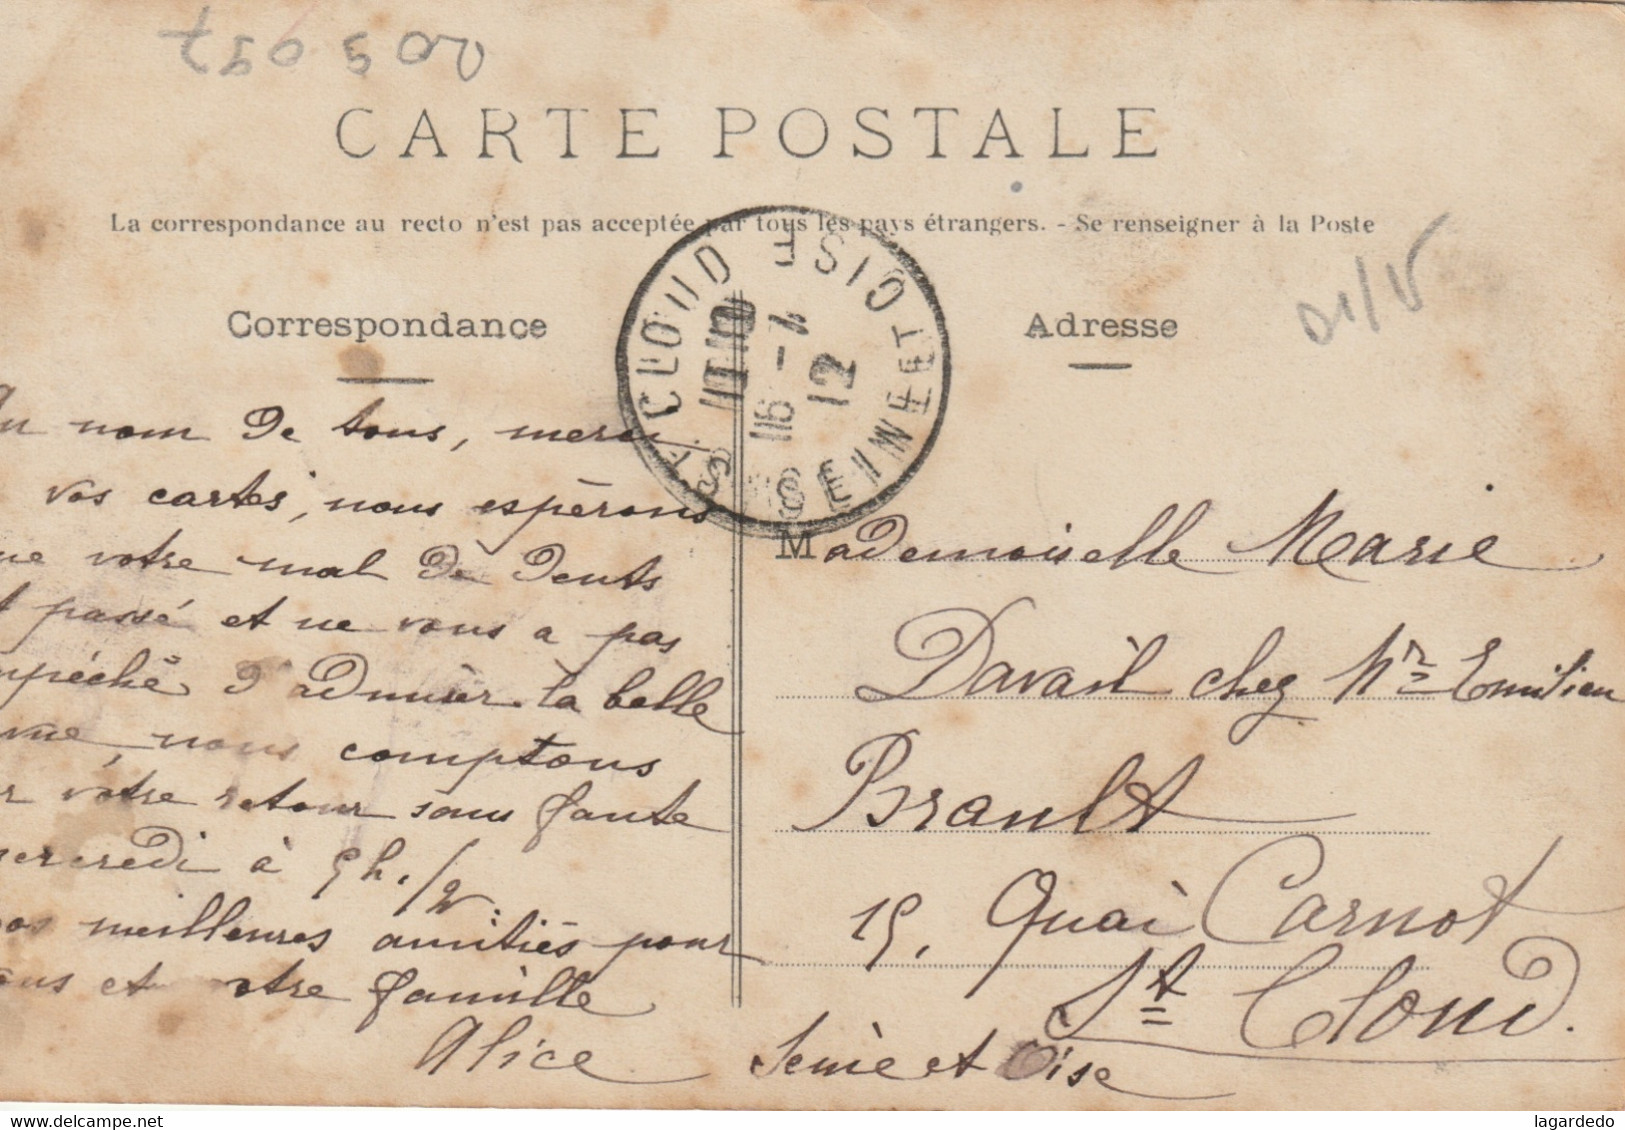 CARTE POSTALE
La correspondance au recto n'est pas acceptée par tous les pays étrangers. - Se renseigner à la Poste
Correspondance
Adresse
nom de tous, merci
vos cartes, nous espérons
votre mal de dents
passé et ne vous a pas
empêché d'admirer la belle
vue, nous comptons
votre retour sans faute
mercredi à 5h./2.
nos meilleures amitiés pour
vous et votre famille
Alice
ST CLOUD
SEINE ET OISE
11 10
16 - 7
12
Mademoiselle Marie
Davail chez Mr Emilien
Brault
15, Quai Carnot
St Cloud.
Seine et Oise
01/V
756 957 500
delcampe.net
lagardedo